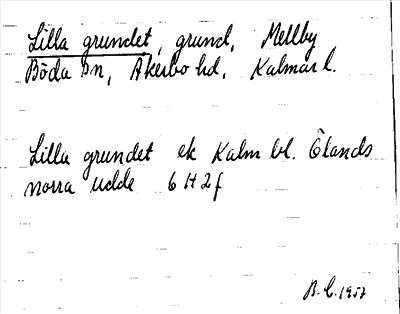 Lilla grundet, grund, Mellby
Böda sn, Åkerbo hd, Kalmar l.
Lilla grundet ek Kalm bl. Ölands
norra udde 6 H 2 f
B. L. 1957